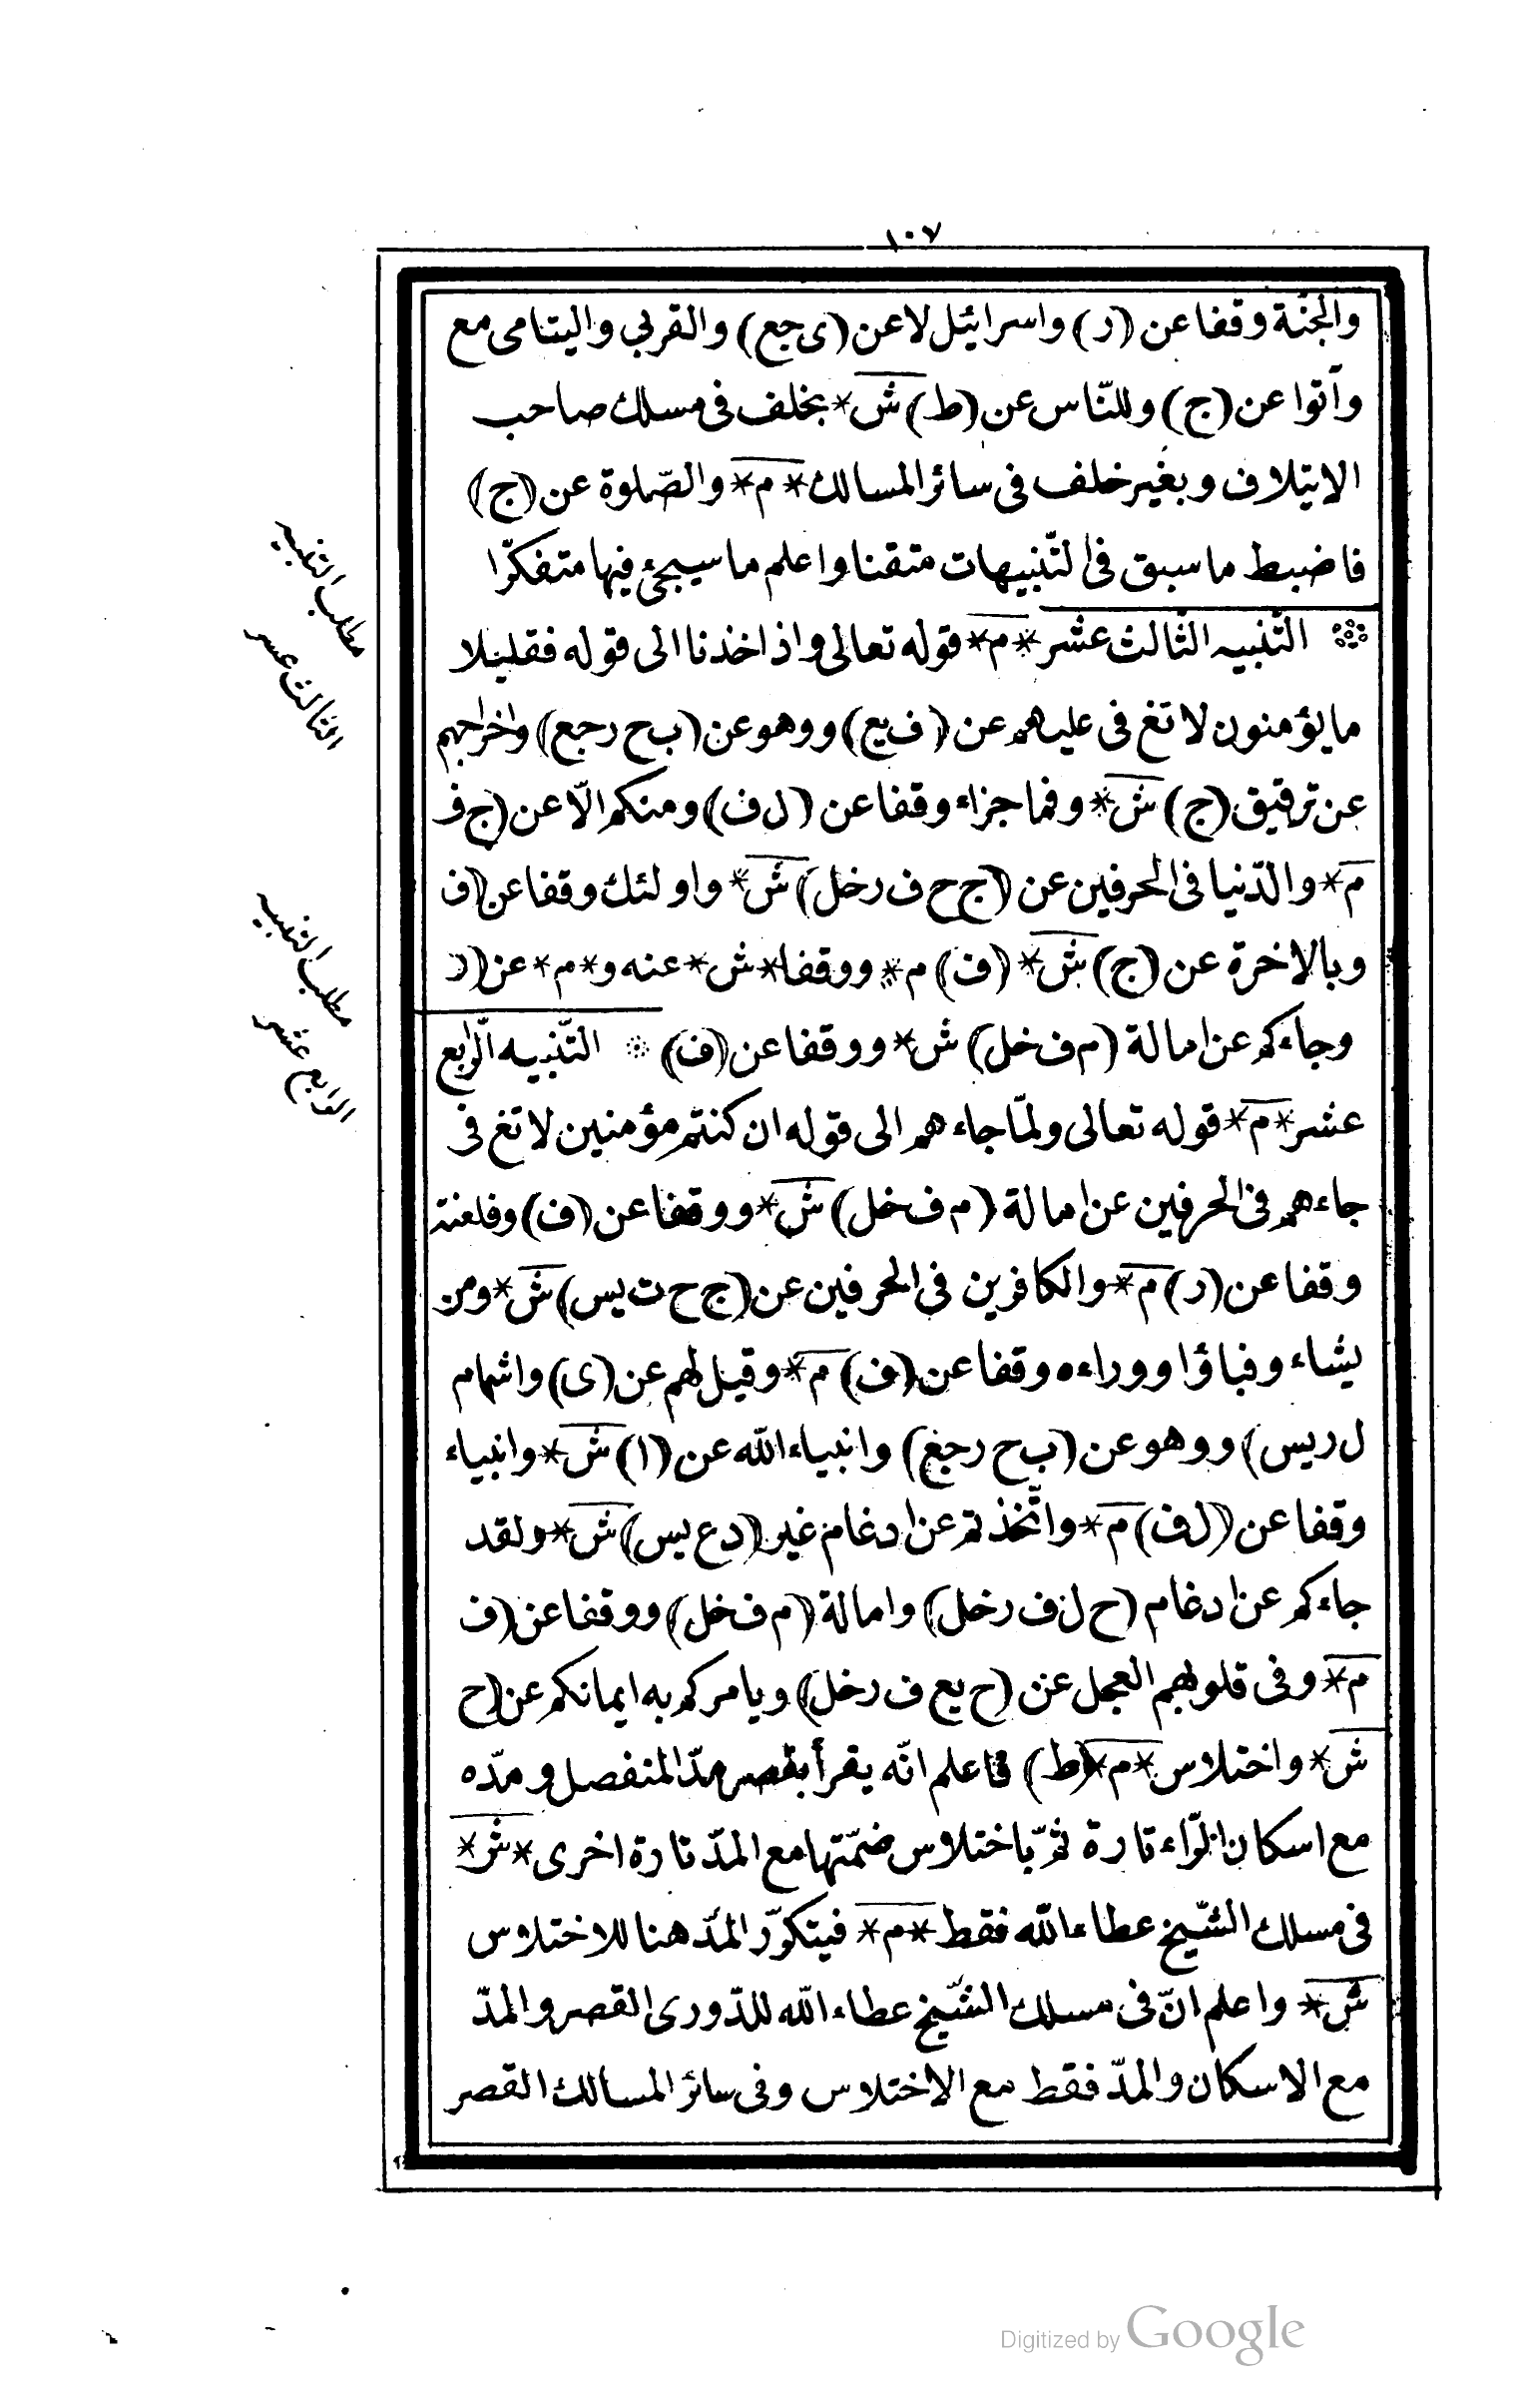 ١٠٧
والجنة وقفا عن (ر) واسرائيل لا عن (ى جع) والقربى واليتامى مع
وآتوا عن (ج) وللنّاس عن (ط) ش * بخلف فى مسلك صاحب
الايتلاف وبغير خلف فى سائر المسالك * م * والصّلوة عن (ج)
فاضبط ما سبق فى التّنبيهات متقنا واعلم ما سيجئ فيها متفكّرا
التّنبيه الثّالث عشر * م * قوله تعالى واذ اخذنا الى قوله فقليلا
ما يؤمنون لا تغ فى عليهم عن (ف يع) ووهو عن (ب ح رجع) واخراجهم
عن ترقيق (ج) ش * وفما جزاء وقفا عن (ل ف) ومنكم الّا عن (ج ف
م * والدّنيا فى الحرفين عن (ج ح ف رخل) ش * واولئك وقفا عن (ف
وبالاخرة عن (ج) ش * (ف) م * ووقفا * ش * عنه و * م * عن (ر
وجاءكم عن امالة (م ف خل) ش * ووقفا عن (ف) ※ التّنبيه الرّابع
عشر * م * قوله تعالى ولمّا جاءهم الى قوله ان كنتم مؤمنين لا تغ فى
جاءهم فى الحرفين عن امالة (م ف خل) ش * ووقفا عن (ف) وفلعنة
وقفا عن (ر) م * والكافرين فى الحرفين عن (ج ح ت يس) ش * ومن
يشاء وفباؤا ووراءه وقفا عن (ف) م * وقيل لهم عن (ى) واشمام
ل ر يس) ووهو عن (ب ح رجع) وانبياء الله عن (ا) ش * وانبياء
وقفا عن (ل ف) م * واتّخذتم عن ادغام غير (د ع يس) ش * ولقد
جاءكم عن ادغام (ح ل ف رخل) وامالة (م ف خل) ووقفا عن (ف
م * وفى قلوبهم العجل عن (ح يع ف رخل) ويامركم به ايمانكم عن (ح
ش * واختلاس * م * (ط) فاعلم انّه يقرأ بقصر مدّ المنفصل ومدّه
مع اسكان الرّاء تارة ثمّ باختلاس ضمّتها مع المدّ تارة اخرى * ش *
فى مسلك الشّيخ عطاء الله فقط * م * فيتكرّر المدّ هنا للاختلاس
ش * واعلم انّ فى مسلك الشّيخ عطاء الله للدّورى القصر والمدّ
مع الاسكان والمدّ فقط مع الاختلاس وفى سائر المسالك القصر
مطلب التنبيه
الثالث عشر
مطلب التنبيه
الرابع عشر
Digitized by Google